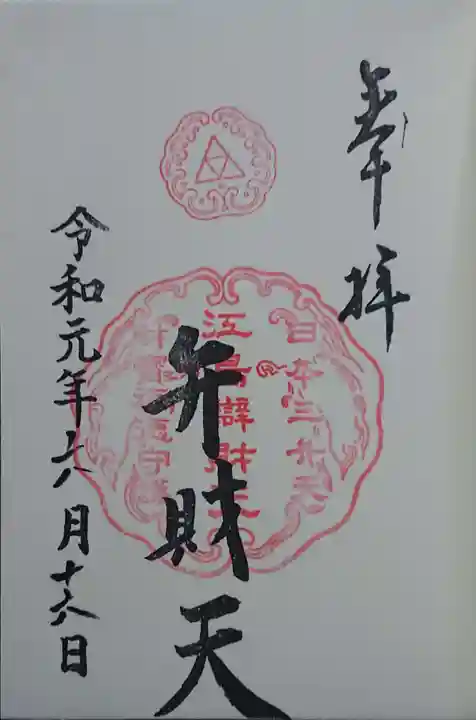 奉拝
日本三弁天
江島辯財天
弁財天
令和元年六月十六日